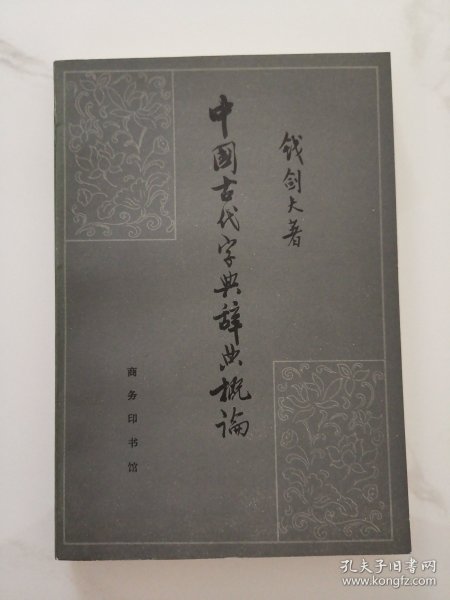 钱剑夫著
中國古代字典辞典概論
商务印书馆
孔夫子旧书网
www.kongfz.com